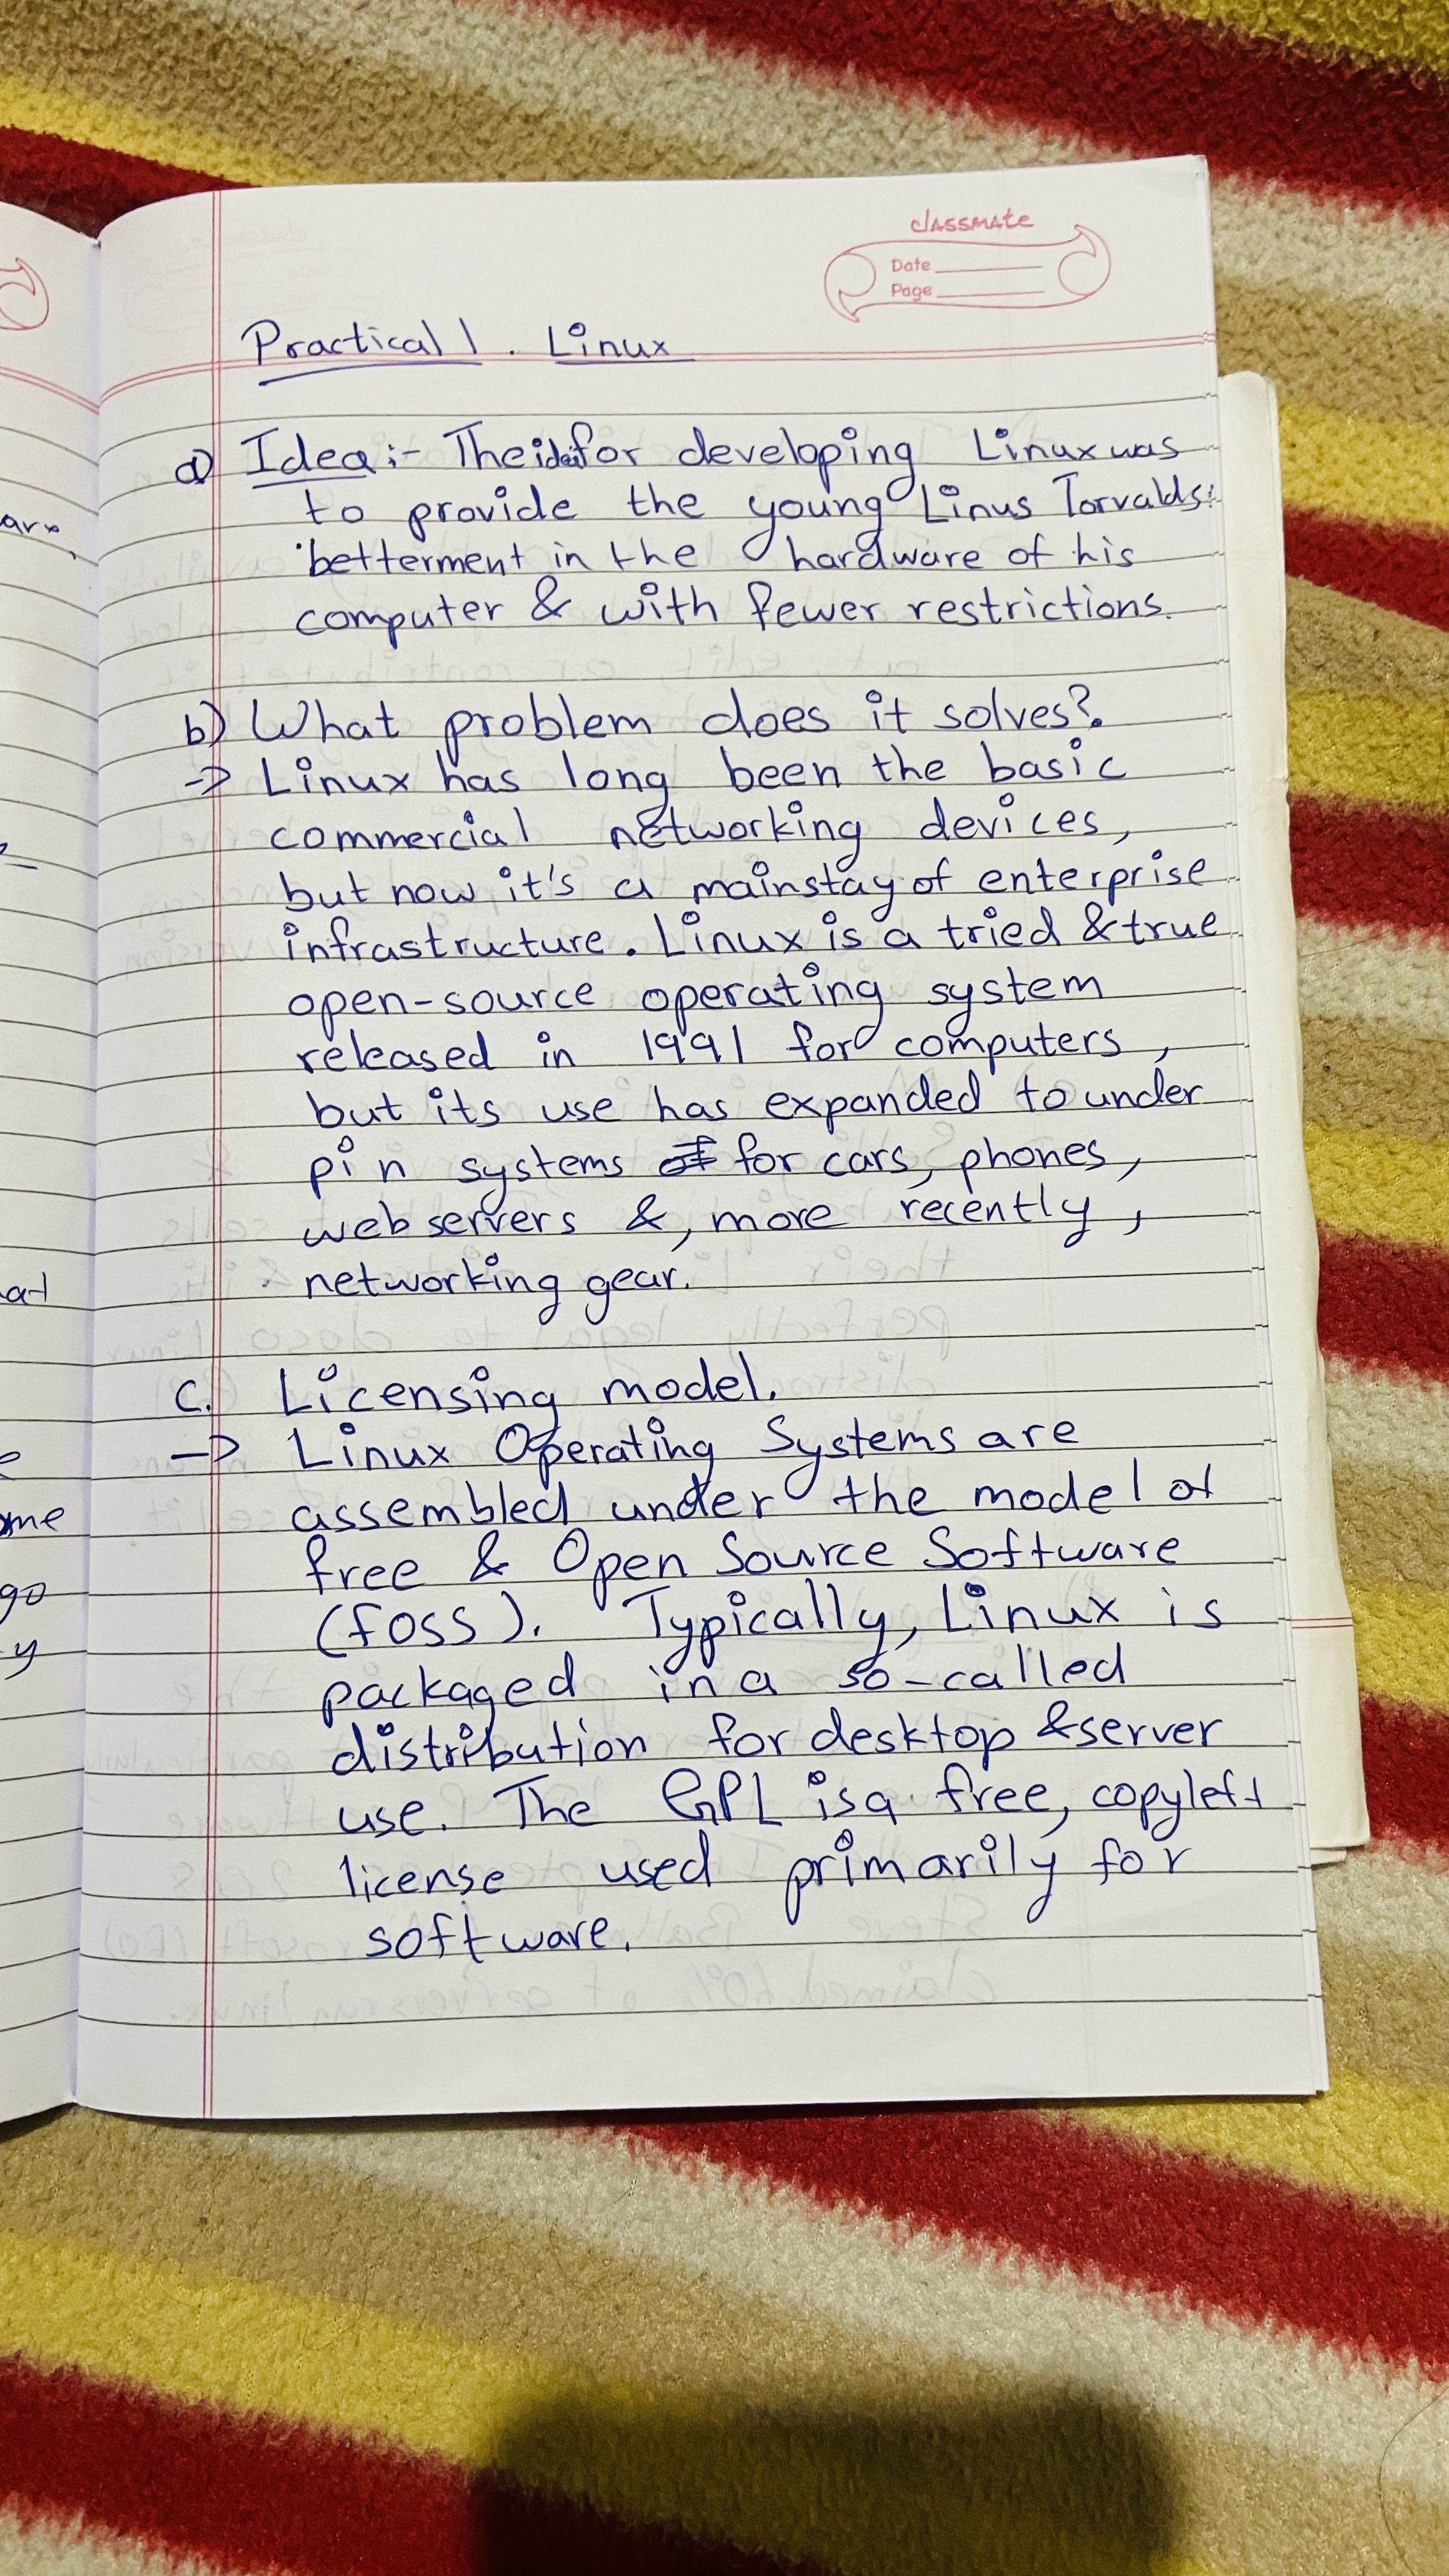 classmate
Date
Page
Practical 1. Linux
a) Idea :- The idea for developing Linux was
to provide the young Linus Torvalds
betterment in the hardware of his
computer & with fewer restrictions.
b) What problem does it solves?
-> Linux has long been the basic
commercial networking devices,
but now it's a mainstay of enterprise
infrastructure. Linux is a tried & true
open-source operating system
released in 1991 for computers,
but its use has expanded to under
pin systems of for cars, phones,
web servers &, more recently,
networking gear.
C. Licensing model.
-> Linux Operating Systems are
assembled under the model of
free & Open Source Software
(FOSS). Typically, Linux is
packaged in a so-called
distribution for desktop & server
use. The GPL is a free, copyleft
license used primarily for
software.